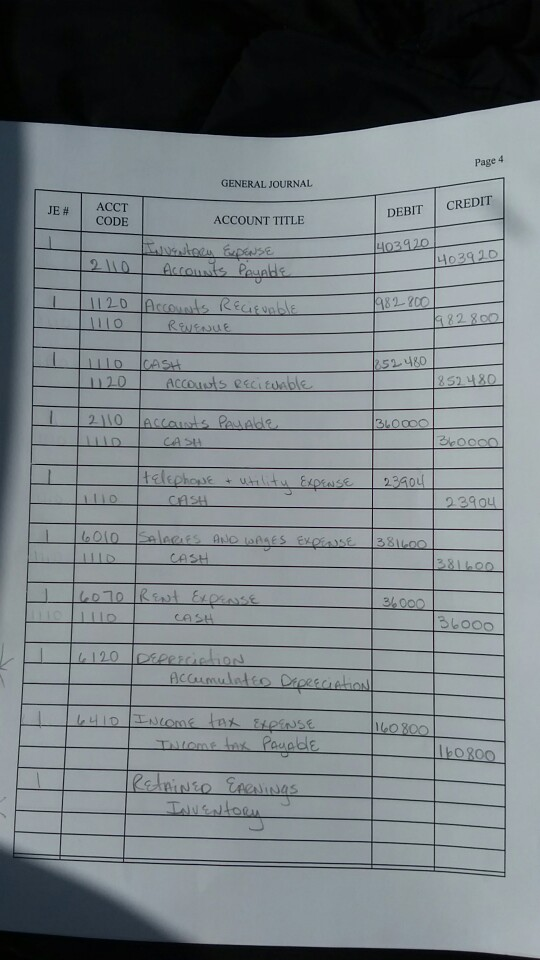 Page 4
GENERAL JOURNAL
JE # ACCT CODE ACCOUNT TITLE DEBIT CREDIT
1 Inventory Expense 403920
2110 Accounts Payable 403920
1 1120 Accounts Recievable 982800
1110 Revenue 982800
1 1110 Cash 852480
1120 Accounts Recievable 852480
1 2110 Accounts Payable 360000
1110 Cash 360000
1 telephone + utility Expense 23904
1110 Cash 23904
1 6010 Salaries and wages Expense 381600
1110 Cash 381600
1 6070 Rent Expense 36000
1110 Cash 36000
1 6120 Depreciation
Accumulated Depreciation
1 6410 Income tax Expense 160800
Income tax Payable 160800
1 Retained Earnings
Inventory